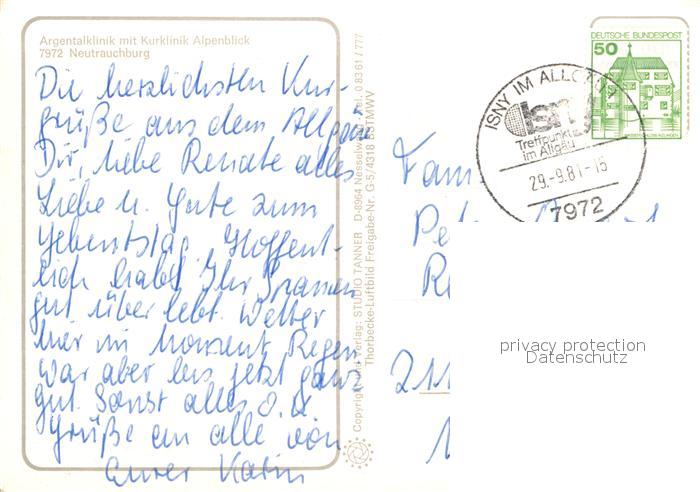 Argentalklinik mit Kurklinik Alpenblick
7972 Neutrauchburg
Die herzlichsten Kur-
grüße aus dem Allgäu
Dir, liebe Renate alles
Liebe u. Gute zum
Geburtstag. Hoffent-
lich habt Ihr
gut überlebt. Wetter
hier im Moment Regen
war aber bis jetzt ganz
gut. Sonst alles o.k.
Grüße an alle von
Eurer Karin
Copyright und Verlag: STUDIO TANNER D-8964 Nesselwang Tel. 0 83 61 / 777
Thorbecke-Luftbild Freigabe-Nr. G-5/4318
DEUTSCHE BUNDESPOST
50
ISNY IM ALLGÄU
isny
Treffpunkt
im Allgäu
29.-9.81-15
7972
Fam.
Pe
R
211
privacy protection
Datenschutz